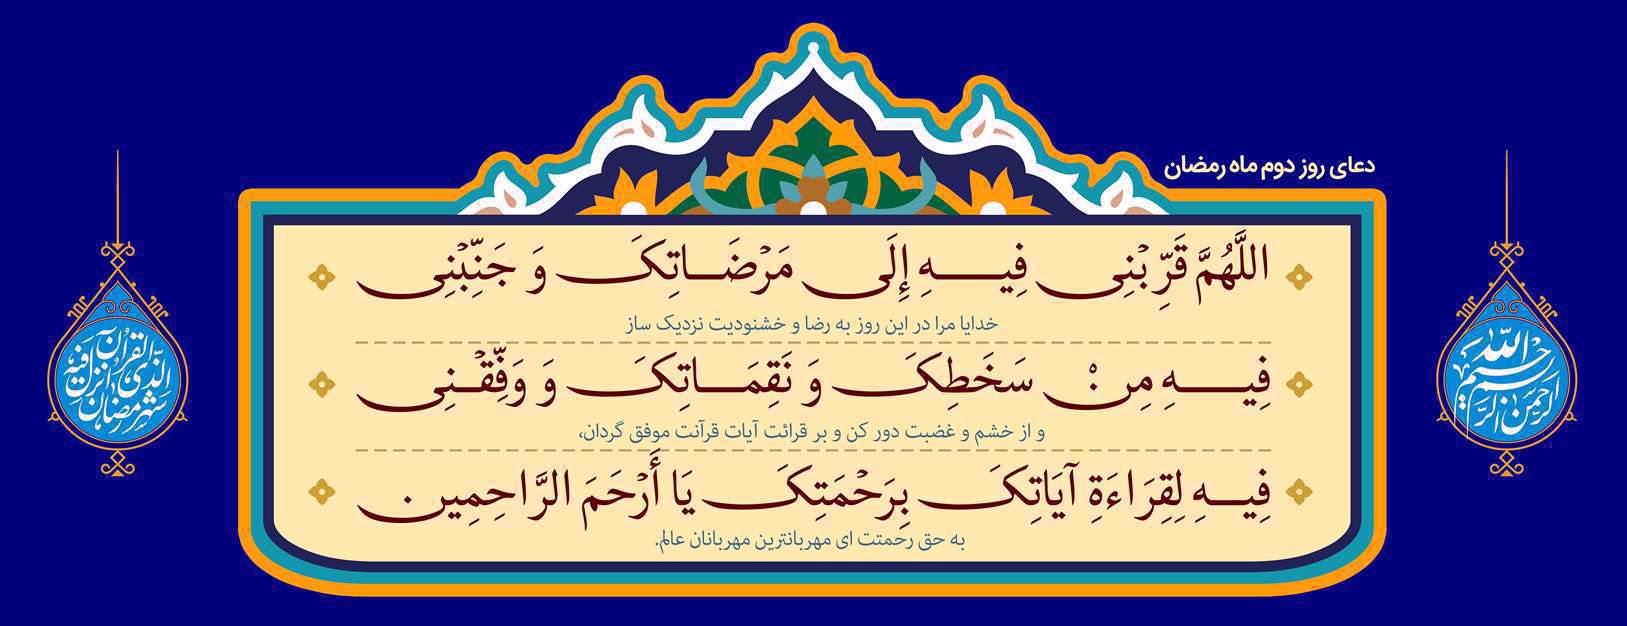 دعای روز دوم ماه رمضان
اللَّهُمَّ قَرِّبْنِی فِیهِ إِلَی مَرْضَاتِکَ وَ جَنِّبْنِی
خدایا مرا در این روز به رضا و خشنودیت نزدیک ساز
فِیهِ مِنْ سَخَطِکَ وَ نَقِمَاتِکَ وَ وَفِّقْنِی
و از خشم و غضبت دور کن و بر قرائت آیات قرآنت موفق گردان،
فِیهِ لِقِرَاءَةِ آیَاتِکَ بِرَحْمَتِکَ یَا أَرْحَمَ الرَّاحِمِین.
به حق رحمتت ای مهربانترین مهربانان عالم.
بسم الله الرحمن الرحیم
شهر رمضان الذی انزل فیه القرآن